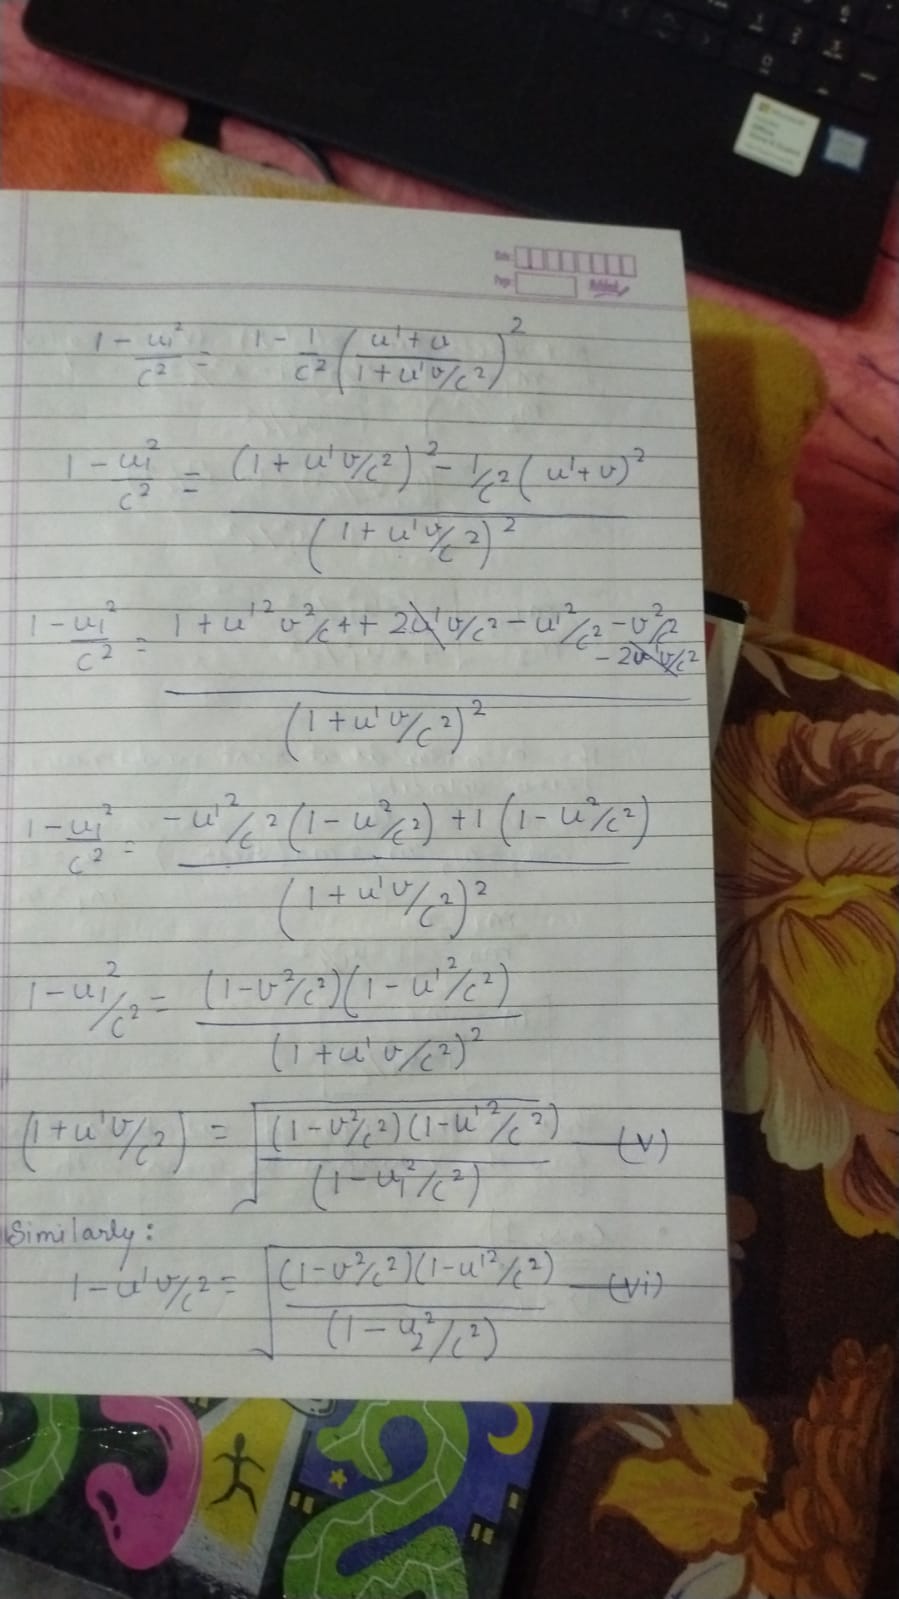 Date
Page
1 - u₁²/c² = 1 - 1/c² ((u' + u)/(1 + u'v/c²))²
1 - u₁²/c² = ((1 + u'v/c²)² - 1/c² (u' + v)²)/(1 + u'v/c²)²
1 - u₁²/c² = (1 + u'²v²/c⁴ + 2u'v/c² - u'²/c² - v²/c² - 2u'v/c²)/(1 + u'v/c²)²
1 - u₁²/c² = (-u'²/c² (1 - u²/c²) + 1 (1 - u²/c²))/(1 + u'v/c²)²
1 - u₁²/c² = ((1 - v²/c²)(1 - u'²/c²))/(1 + u'v/c²)²
(1 + u'v/c²) = √((1 - v²/c²)(1 - u'²/c²)/(1 - u₁²/c²)) — (v)
Similarly:
1 - u'v/c² = √((1 - v²/c²)(1 - u'²/c²)/(1 - u₂²/c²)) — (vi)